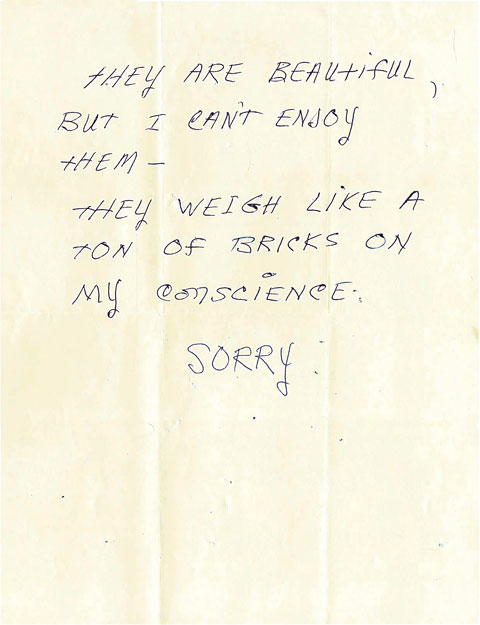 THEY ARE BEAUTIFUL,
BUT I CAN'T ENJOY
THEM –
THEY WEIGH LIKE A
TON OF BRICKS ON
MY CONSCIENCE.
SORRY.